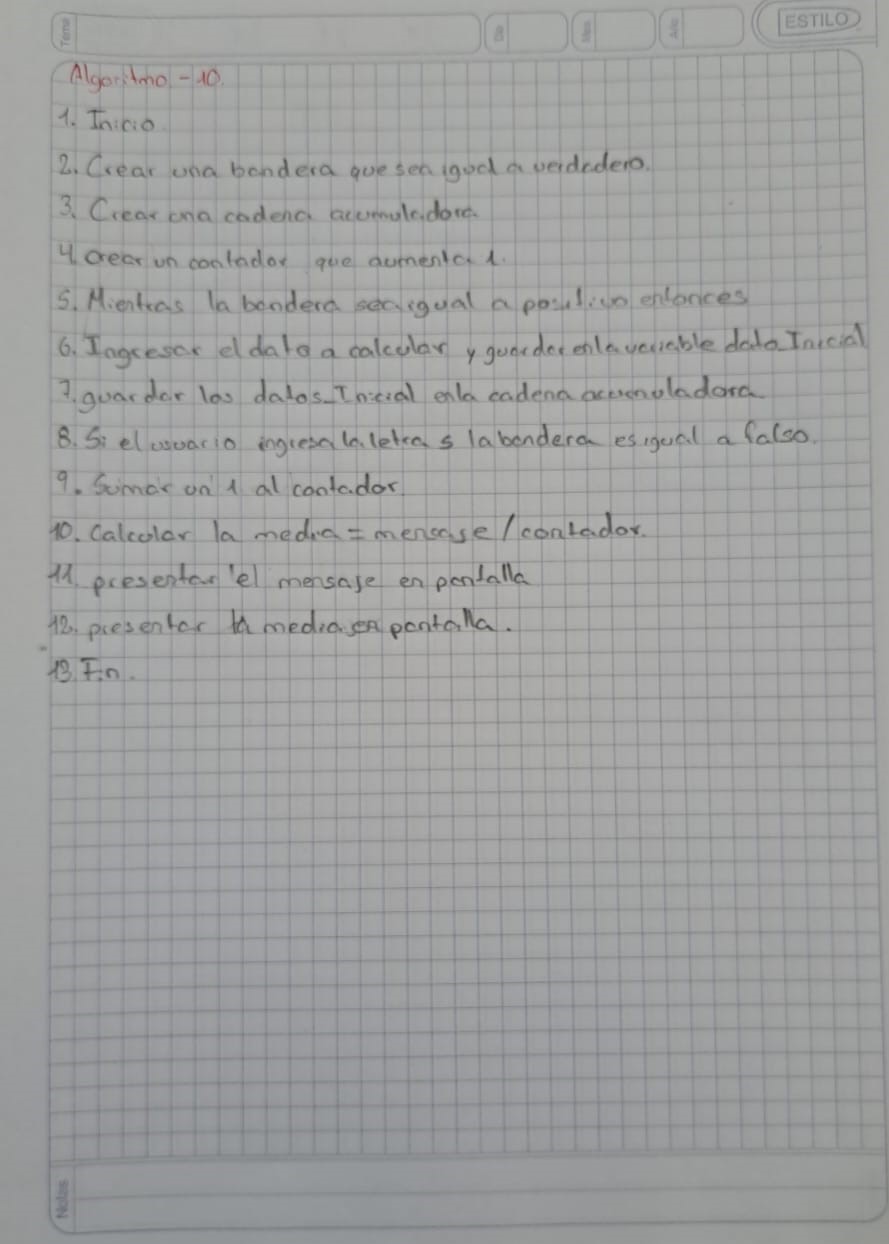 Tema
Dia
Mes
Año
ESTILO
Algoritmo - 10.
1. Inicio
2. Crear una bandera que sea igual a verdadero.
3. Crear una cadena acumuladora.
4. crear un contador que aumenta 1.
5. Mientras la bandera sea igual a positivo entonces
6. Ingresar el dato a calcular y guardar en la variable dato_Inicial
7. guardar los datos_Inicial en la cadena acumuladora
8. Si el usuario ingresa la letra s la bandera es igual a falso.
9. Sumar un 1 al contador
10. Calcular la media = mensaje / contador.
11. presentar el mensaje en pantalla
12. presentar la media en pantalla.
13. Fin.
Notas